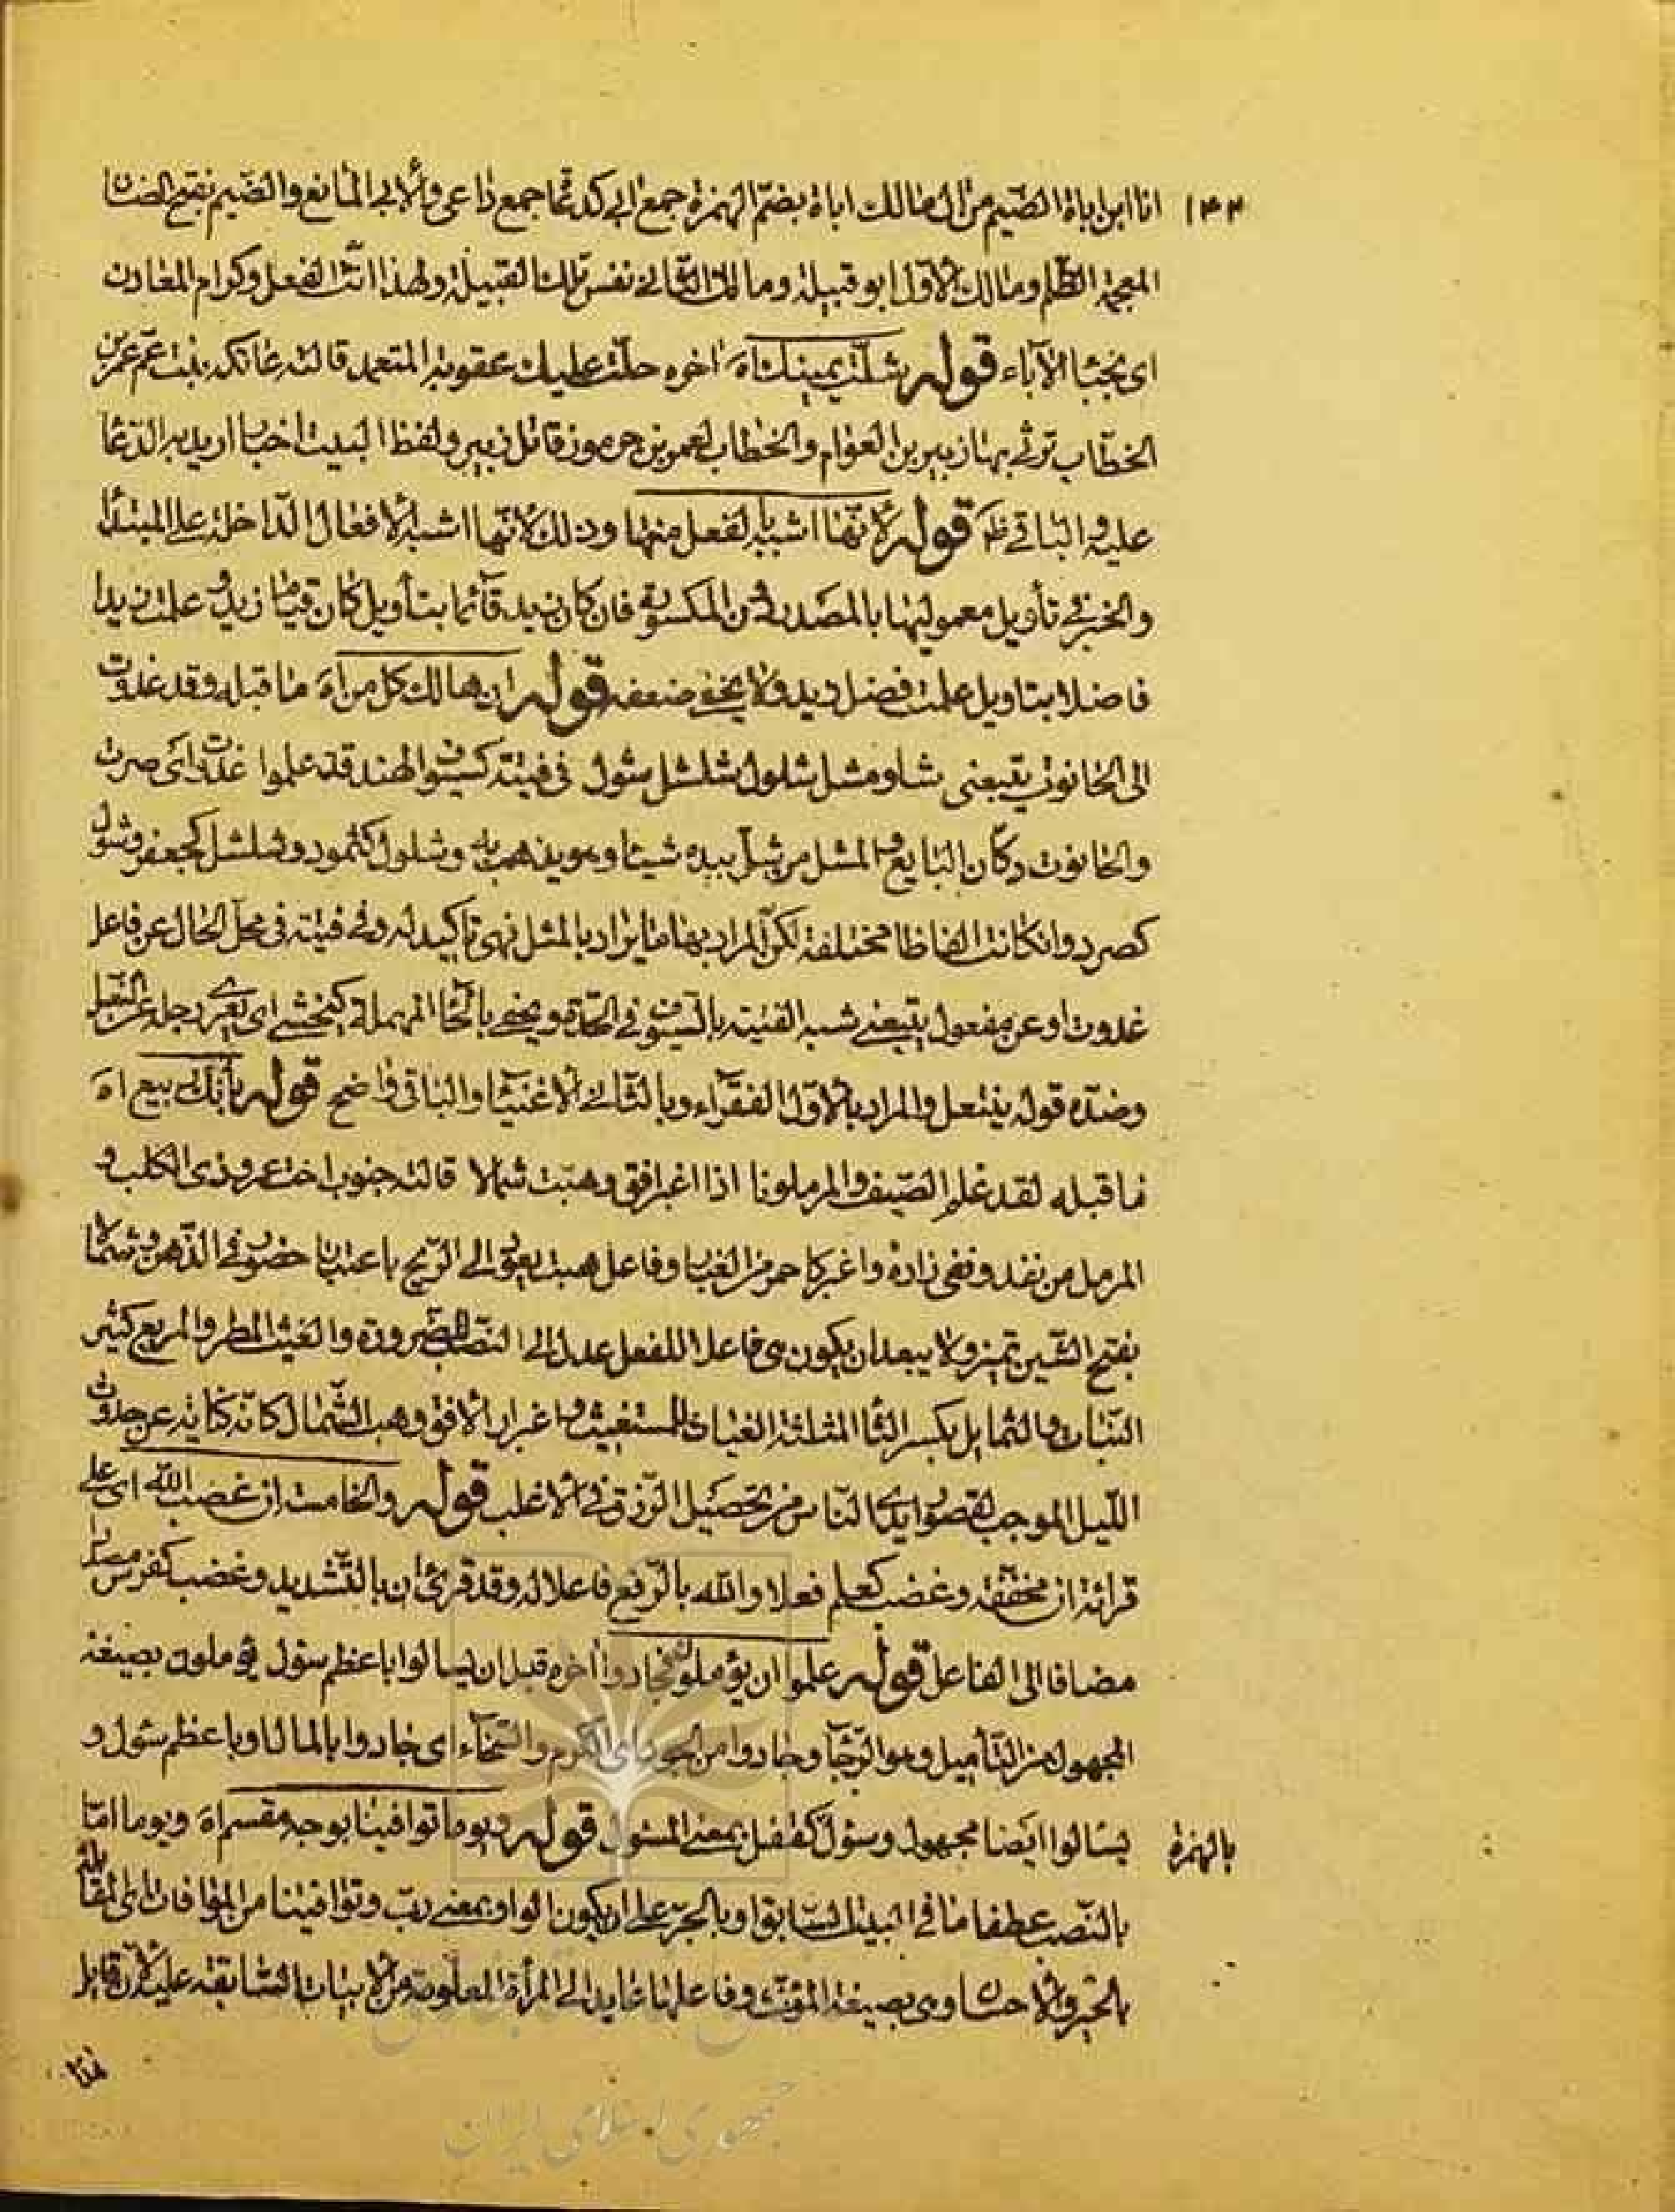 ١٤٣ انا ابن اباة الضيم من ال مالك اباة بضم الهمزة جمع ابي كدعاة جمع داعي والابي المانع والضيم بفتح الضاد
المعجمة الظلم ومالك الاول ابو قبيلة ومالك الثاني نفس تلك القبيلة ولهذا انث الفعل وكرام المعادن
اى نجباء الآباء قوله شلت يمينك اه اخره حلت عليك عقوبة المتعمد قالته عاتكه بنت عم عمر بن
الخطاب ترثى بها زبير بن العوام والخطاب لعمرو بن جرموز قاتل زبير ولفظ البيت اخبار اريد به الدعاء
عليه والباقي ظ قوله لانها اشبه بالفعل منها وذلك لانها اشبه الافعال الداخلة على المبتدأ
والخبر في تأويل معموليها بالمصدر ان المكسورة فان كان زيد قائما بتأويل كان قيام زيد وعلمت زيدا
فاضلا بتاويل علمت فضل زيد ولا يخفى ضعفه قوله ان هالك كل من اه ما قبله وقد غدوت
الى الحانوت يتبعني شاو مشل شلول شلشل شول في فتية كسيوف الهند قد علموا غدوت اى صرت
والحانوت دكان البايع والمشل من شل بيده شيئا وهو يذهب به وشلول كثمود وشلشل كجعفر وشول
كصرد وان كانت الفاظا مختلفة لكن المراد بها ما يراد بالمشل فهى تاكيد له وفي فتية في محل الحال عن فاعل
غدوت او عن مفعول يتبعنى شبه الفتية بالسيوف في الحدة ويحفى بالحاء المهملة كيخشى اى يعرى رجله عن النعل
وضده قوله ينتعل والمراد بالاول الفقراء وبالثاني الاغنياء والباقى واضح قوله بانك ربيع اه
ما قبله لقد علم الضيف والمرملونا اذا اغبر افق وهبت شمالا قالته جنوب اخت عمرو ذى الكلب و
المرمل من نفد وفنى زاده واغبر كاحمر من الغبار وفاعل هبت يعود الى الريح باعتبار حضوره في الذهن وشمالا
بفتح الشين تميز ولا يبعد ان يكون هي فاعلا للفعل عدل الى النصب للضرورة والغيث المطر والمريع كثير
النبات والثمال بكسر الثاء المثلثة الغياث للمستغيث واغبرار الافق وهب الشمال كانه كناية عن حدوث
الليل الموجب لقصور ايدى الناس من تحصيل الرزق في الاغلب قوله والخامسة ان غضب الله اى على
قرائة ان مخففة وغضب كعلم فعلا والله بالرفع فاعلا له وقد قرئ ان بالتشديد وغضب كفرس مصدرا
مضافا الى الفاعل قوله علموا ان يؤملون فجادوا اخره قبل ان يسالوا باعظم سؤل يؤملون بصيغة
المجهول من التأميل وهو الرجاء وجادوا من الجود اى الكرم والسخاء اى جادوا بالمال او باعظم سؤل و
يسالوا ايضا مجهول وسؤل كقفل بمعنى المسئول قوله ويوما توافينا بوجه مقسم اه ويوما اما
بالهمزة
بالنصب عطفا ما في البيت السابق او بالجر على ان يكون الواو بمعنى رب وتوافينا من الموافات اى المقابلة
بالخير والاحسان وهى بصيغة المؤنث وفاعلها عايد الى المرأة المعلومة من الابيات السابقة عليه لان قابل
هذا
جمهوری اسلامی ایران